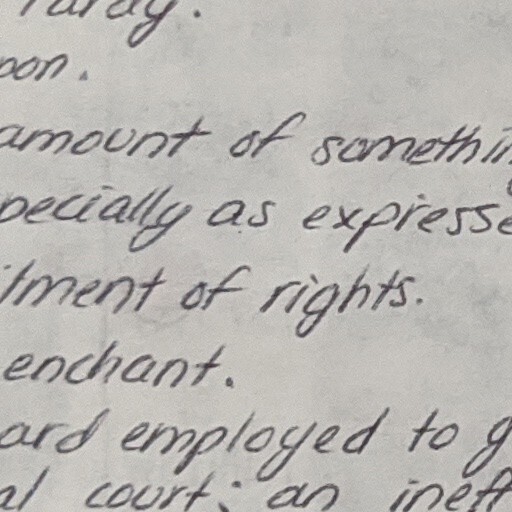 Tardy.
oon.
amount of somethin
pecially as expresse
tment of rights.
enchant.
ard employed to g
al court; an ineff